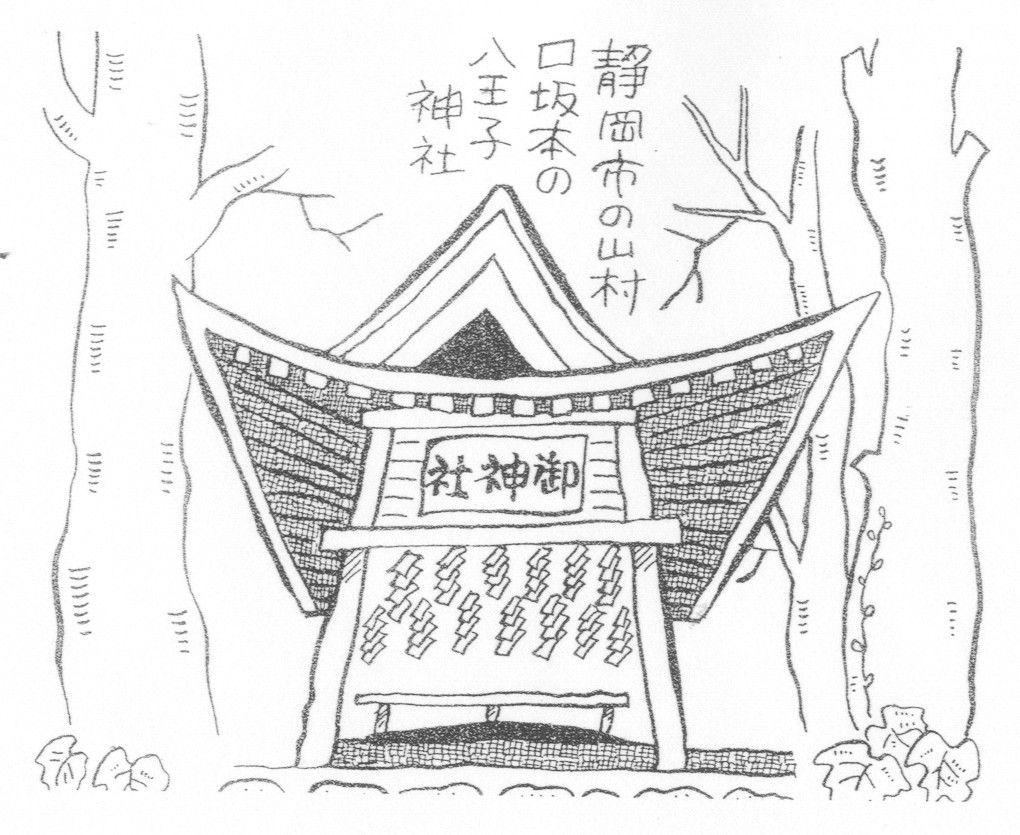 静岡市の山村
口坂本の
八王子
神社
御神社